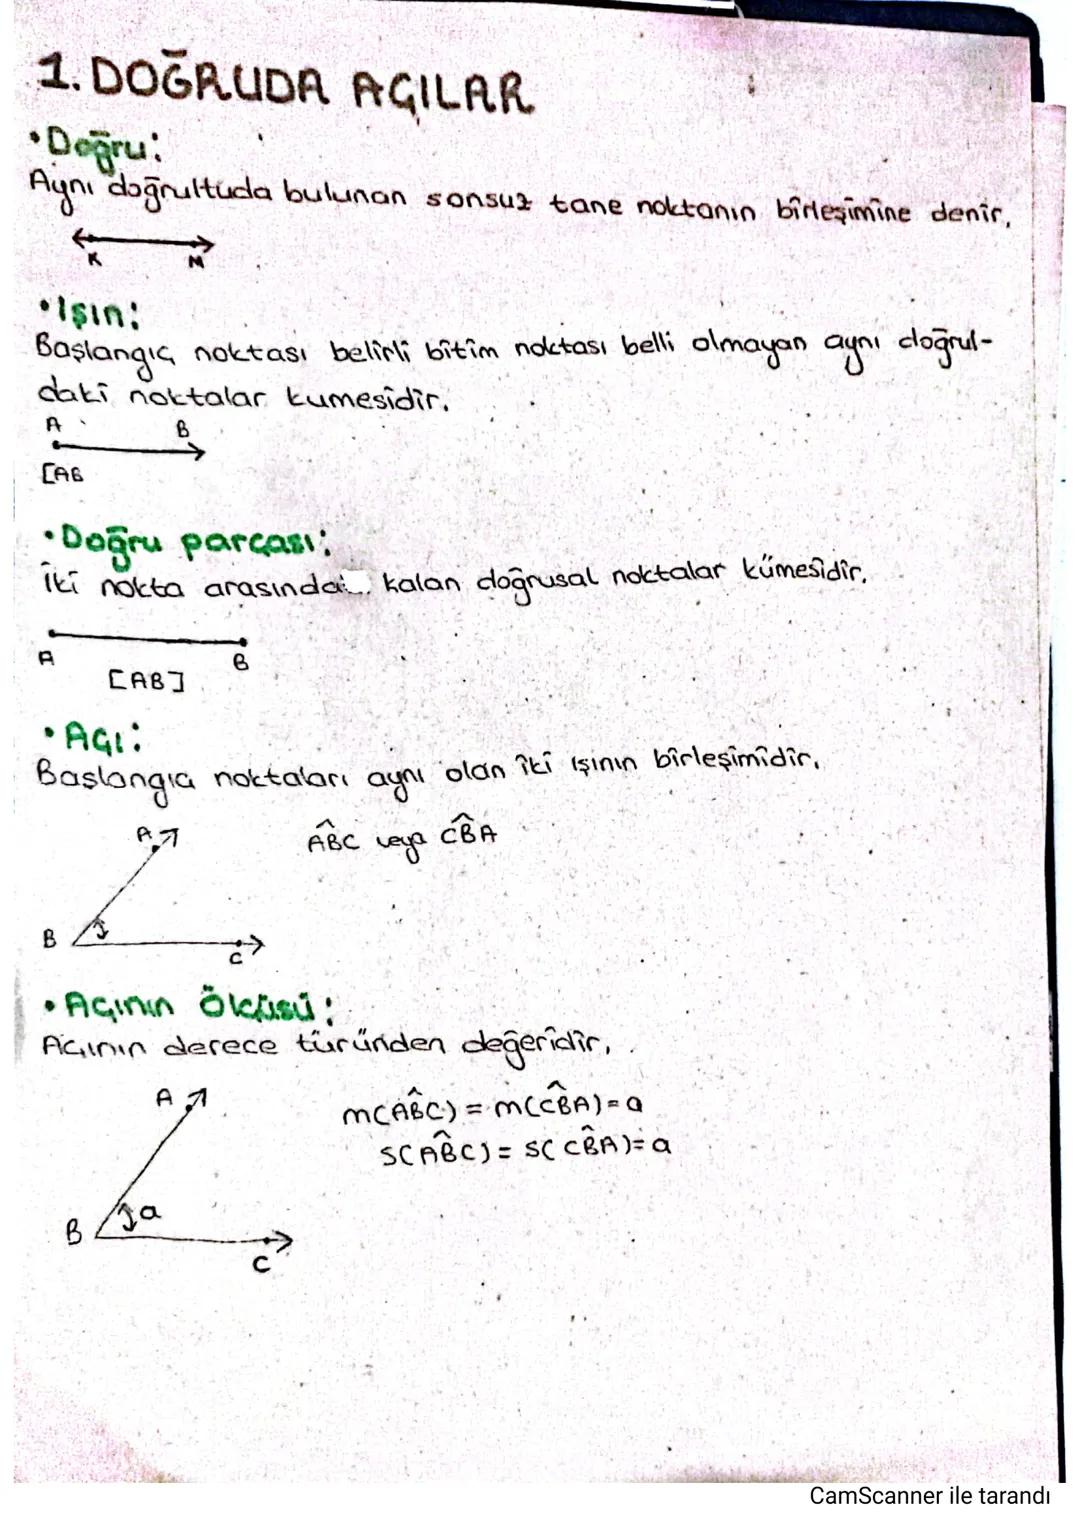 1. DOĞRUDA AÇILAR
• Doğru:
Aynı doğrultuda bulunan sonsuz tane noktanın birleşimine denir.
K M
• Işın:
Başlangıç noktası belirli bitim noktası belli olmayan aynı doğrul-
daki noktalar kumesidir.
A B
[AB
• Doğru parçası:
İki nokta arasında kalan doğrusal noktalar kümesidir.
A B
[AB]
• Açı:
Başlangıç noktaları aynı olan iki ışının birleşimidir.
A
AB̂C veya CB̂A
B
C
• Açının Ölçüsü:
Açının derece türünden değeridir.
A
m(AB̂C) = m(CB̂A) = a
s(AB̂C) = s(CB̂A) = a
a
B
C
CamScanner ile tarandı